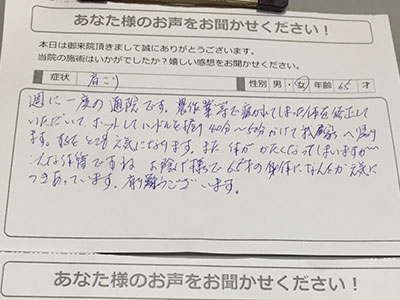 あなた様のお声をお聞かせください！
本日は御来院頂きまして誠にありがとうございます。
当院の施術はいかがでしたか？嬉しい感想をお聞かせください。
症状 肩こり 性別 男・女 年齢 65 才
週に一度の通院です。農作業等で疲れてしまった体を矯正して
いただいて、ホットしてハンドルを握り40分〜50分かけて我家へ帰り
ます。すると とても元気になります。また 体が かたくなってしまいますが…
こんな体調ですね お陰様で65才の身体になんとか元気に
つきあっています。有り難うございます。
あなた様のお声をお聞かせください！